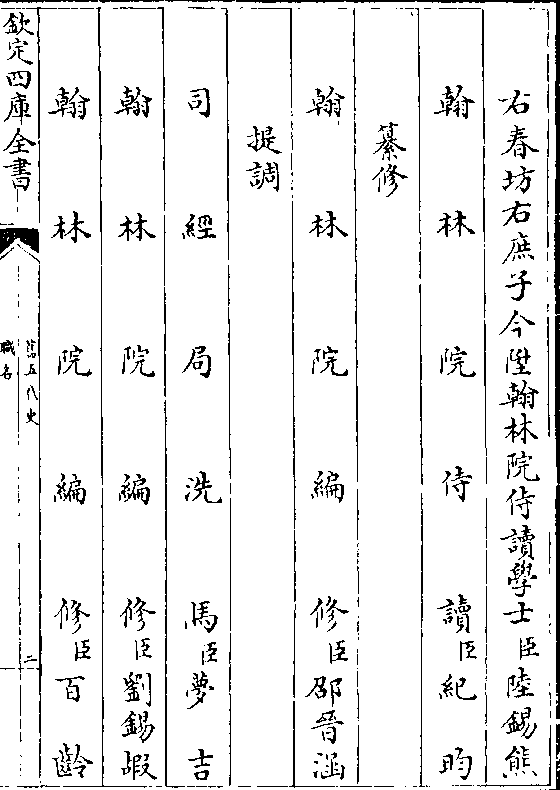 右春坊右庶子今陞翰林院侍讀學士臣陸錫熊
翰林院侍讀臣紀昀
纂修
翰林院編修臣邵晉涵
提調
司經局洗馬臣夢吉
翰林院編修臣劉錫嘏
翰林院編修臣百齡
欽定四庫全書
舊五代史
職名
二